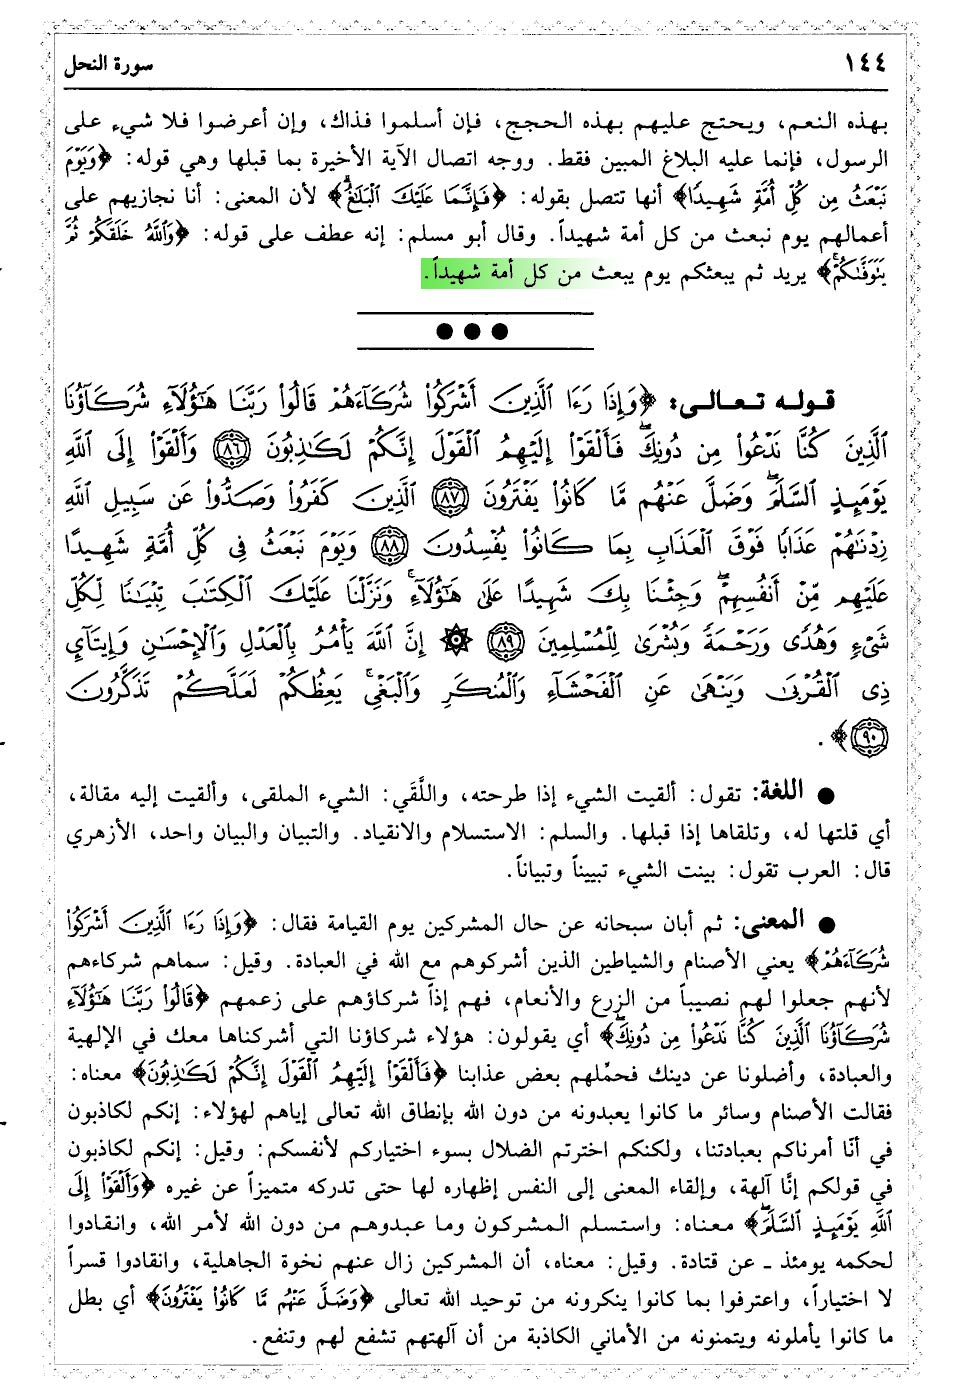 ١٤٤
سورة النحل
بهذه النعم، ويحتج عليهم بهذه الحجج، فإن أسلموا فذاك، وإن أعرضوا فلا شيء على
الرسول، فإنما عليه البلاغ المبين فقط. ووجه اتصال الآية الأخيرة بما قبلها وهي قوله: ﴿وَيَوْمَ
نَبْعَثُ مِن كُلِّ أُمَّةٍ شَهِيدًا﴾ أنها تتصل بقوله: ﴿فَإِنَّمَا عَلَيْكَ الْبَلَٰغُ﴾ لأن المعنى: أنا نجازيهم على
أعمالهم يوم نبعث من كل أمة شهيداً. وقال أبو مسلم: إنه عطف على قوله: ﴿وَاللَّهُ خَلَقَكُمْ ثُمَّ
يَتَوَفَّىٰكُمْ﴾ يريد ثم يبعثكم يوم يبعث من كل أمة شهيداً.
قوله تعالى: ﴿وَإِذَا رَءَا الَّذِينَ أَشْرَكُوا۟ شُرَكَآءَهُمْ قَالُوا۟ رَبَّنَا هَٰٓؤُلَآءِ شُرَكَآؤُنَا
الَّذِينَ كُنَّا نَدْعُوا۟ مِن دُونِكَ ۖ فَأَلْقَوْا۟ إِلَيْهِمُ الْقَوْلَ إِنَّكُمْ لَكَٰذِبُونَ ٨٦ وَأَلْقَوْا۟ إِلَى اللَّهِ
يَوْمَئِذٍ السَّلَمَ ۖ وَضَلَّ عَنْهُم مَّا كَانُوا۟ يَفْتَرُونَ ٨٧ الَّذِينَ كَفَرُوا۟ وَصَدُّوا۟ عَن سَبِيلِ اللَّهِ
زِدْنَٰهُمْ عَذَابًا فَوْقَ الْعَذَابِ بِمَا كَانُوا۟ يُفْسِدُونَ ٨٨ وَيَوْمَ نَبْعَثُ فِى كُلِّ أُمَّةٍ شَهِيدًا
عَلَيْهِم مِّنْ أَنفُسِهِمْ ۖ وَجِئْنَا بِكَ شَهِيدًا عَلَىٰ هَٰٓؤُلَآءِ ۚ وَنَزَّلْنَا عَلَيْكَ الْكِتَٰبَ تِبْيَٰنًا لِّكُلِّ
شَىْءٍ وَهُدًى وَرَحْمَةً وَبُشْرَىٰ لِلْمُسْلِمِينَ ٨٩ ۞ إِنَّ اللَّهَ يَأْمُرُ بِالْعَدْلِ وَالْإِحْسَٰنِ وَإِيتَآئِ
ذِى الْقُرْبَىٰ وَيَنْهَىٰ عَنِ الْفَحْشَآءِ وَالْمُنكَرِ وَالْبَغْىِ ۚ يَعِظُكُمْ لَعَلَّكُمْ تَذَكَّرُونَ
٩٠﴾.
● اللغة: تقول: ألقيت الشيء إذا طرحته، واللَّقَى: الشيء الملقى، وألقيت إليه مقالة،
أي قلتها له، وتلقاها إذا قبلها. والسلم: الاستسلام والانقياد. والتبيان والبيان واحد، الأزهري
قال: العرب تقول: بينت الشيء تبييناً وتبياناً.
● المعنى: ثم أبان سبحانه عن حال المشركين يوم القيامة فقال: ﴿وَإِذَا رَءَا الَّذِينَ أَشْرَكُوا۟
شُرَكَآءَهُمْ﴾ يعني الأصنام والشياطين الذين أشركوهم مع الله في العبادة. وقيل: سماهم شركاءهم
لأنهم جعلوا لهم نصيباً من الزرع والأنعام، فهم إذاً شركاؤهم على زعمهم ﴿قَالُوا۟ رَبَّنَا هَٰٓؤُلَآءِ
شُرَكَآؤُنَا الَّذِينَ كُنَّا نَدْعُوا۟ مِن دُونِكَ ۖ﴾ أي يقولون: هؤلاء شركاؤنا التي أشركناها معك في الإلهية
والعبادة، وأضلونا عن دينك فحمِّلهم بعض عذابنا ﴿فَأَلْقَوْا۟ إِلَيْهِمُ الْقَوْلَ إِنَّكُمْ لَكَٰذِبُونَ﴾ معناه:
فقالت الأصنام وسائر ما كانوا يعبدونه من دون الله بإنطاق الله تعالى إياهم لهؤلاء: إنكم لكاذبون
في أنّا أمرناكم بعبادتنا، ولكنكم اخترتم الضلال بسوء اختياركم لأنفسكم: وقيل: إنكم لكاذبون
في قولكم إنَّا آلهة، وإلقاء المعنى إلى النفس إظهاره لها حتى تدركه متميزاً عن غيره ﴿وَأَلْقَوْا۟ إِلَى
اللَّهِ يَوْمَئِذٍ السَّلَمَ ۖ﴾ معناه: واستسلم المشركون وما عبدوهم من دون الله لأمر الله، وانقادوا
لحكمه يومئذ ـ عن قتادة. وقيل: معناه، أن المشركين زال عنهم نخوة الجاهلية، وانقادوا قسراً
لا اختياراً، واعترفوا بما كانوا ينكرونه من توحيد الله تعالى ﴿وَضَلَّ عَنْهُم مَّا كَانُوا۟ يَفْتَرُونَ﴾ أي بطل
ما كانوا يأملونه ويتمنونه من الأماني الكاذبة من أن آلهتهم تشفع لهم وتنفع.